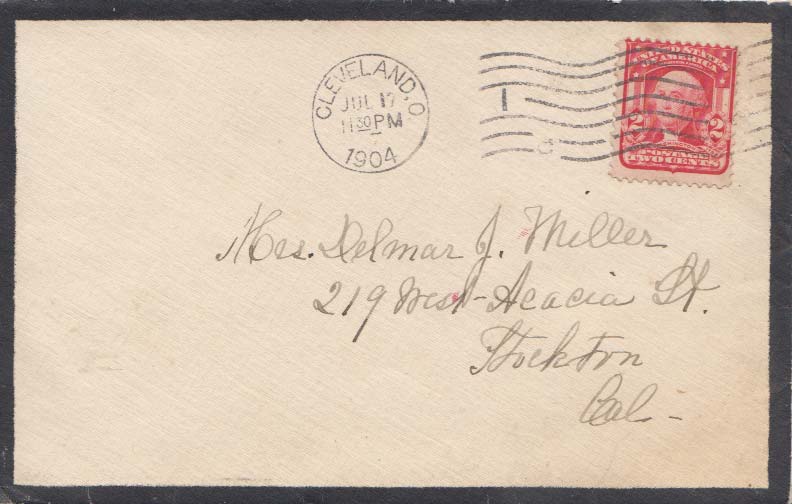 CLEVELAND, O.
JUL 17
11 30 PM
1904
1
C
UNITED STATES
OF AMERICA
2 2
POSTAGE
TWO CENTS
Mrs. Delmar J. Miller
219 West Acacia St.
Stockton
Cal-